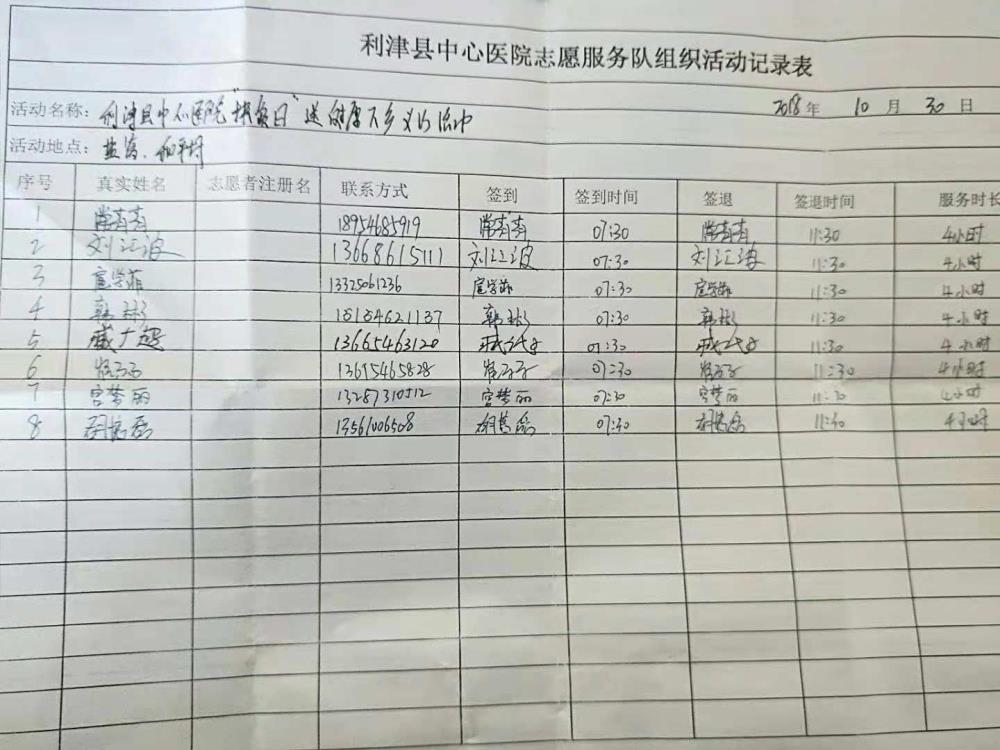 利津县中心医院志愿服务队组织活动记录表
活动名称：利津县中心医院"扶贫日"送健康下乡义诊活动 2018年 10月 30日
活动地点：盐窝、和平村
序号 真实姓名 志愿者注册名 联系方式 签到 签到时间 签退 签退时间 服务时长
1 常青青 18954685919 常青青 07:30 常青青 11:30 4小时
2 刘江波 13668615111 刘江波 07:30 刘江波 11:30 4小时
3 扈学菲 13325061236 扈学菲 07:30 扈学菲 11:30 4小时
4 韩彬 18184621137 韩彬 07:30 韩彬 11:30 4小时
5 13665463120 07:30 11:30 4小时
6 13615465828 07:30 11:30 4小时
7 宫梦丽 13287310512 宫梦丽 07:30 宫梦丽 11:30 4小时
8 13561006508 07:40 11:40 4小时